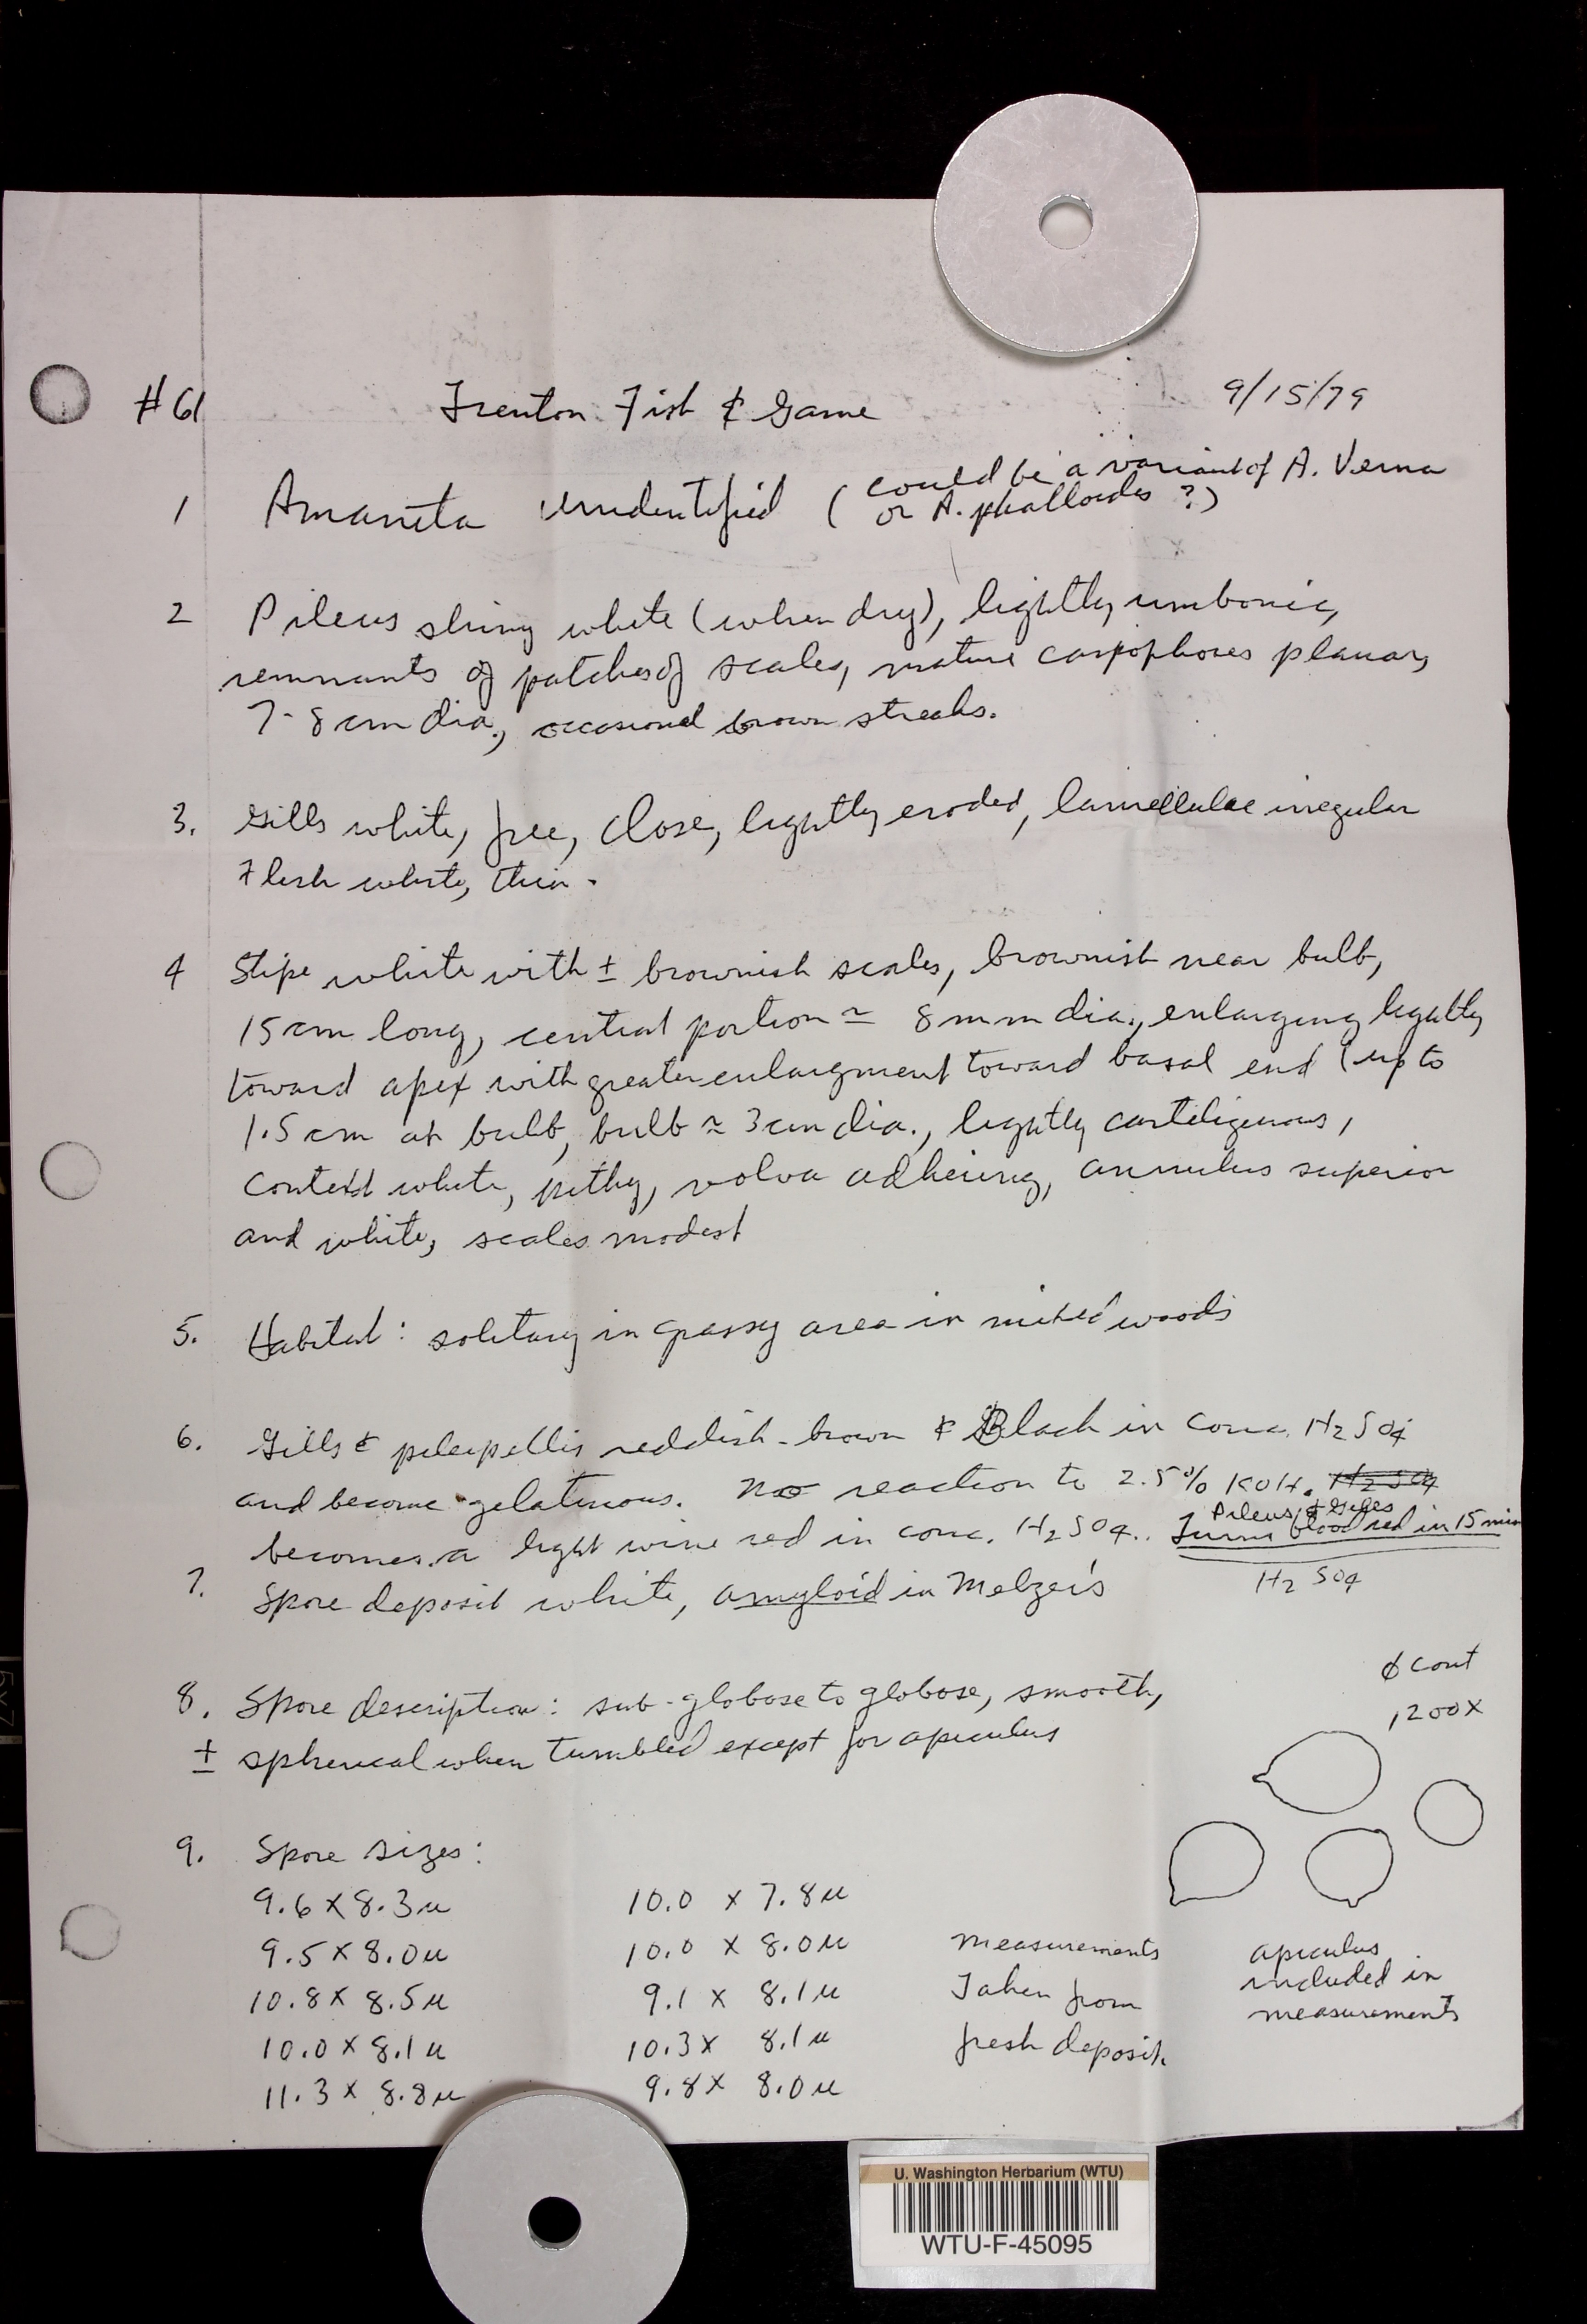 #61 Trenton Fish & Game 9/15/79
1 Amanita unidentified (could be a variant of A. Verna
or A. phalloides ?)
2 Pileus shiny white (when dry), lightly umbonic,
remnants of patches of scales, mature carpophores planar,
7-8 cm dia., occasional brown streaks.
3. Gills white, free, close, lightly eroded, lamellulae irregular
Flesh white, thin.
4 Stipe white with ± brownish scales, brownish near bulb,
15 cm long, central portion ≃ 8 mm dia., enlarging lightly
toward apex with greater enlargment toward basal end (up to
1.5 cm at bulb, bulb ≃ 3 cm dia., lightly cartiligenous,
context white, pithy, volva adhering, annulus superior
and white, scales modest
5. Habitat: solitary in grassy area in mixed woods
6. Gills & pileipellis reddish-brown & Black in conc. H2SO4
and become gelatinous. No reaction to 2.5% KOH. H2SO4
Pileus & Gills
becomes a light wine red in conc. H2SO4. Turns blood red in 15 min
H2SO4
7. Spore deposit white, amyloid in Melzer's
8. Spore description: sub-globose to globose, smooth,
± spherical when tumbled except for apiculus
ϕ cont
1200X
9. Spore sizes:
9.6 x 8.3 µ 10.0 x 7.8 µ
9.5 x 8.0 µ 10.0 x 8.0 µ measurements apiculus
10.8 x 8.5 µ 9.1 x 8.1 µ Taken from included in
10.0 x 8.1 µ 10.3 x 8.1 µ fresh deposit. measurements
11.3 x 8.8 µ 9.8 x 8.0 µ
U. Washington Herbarium (WTU)
WTU-F-45095